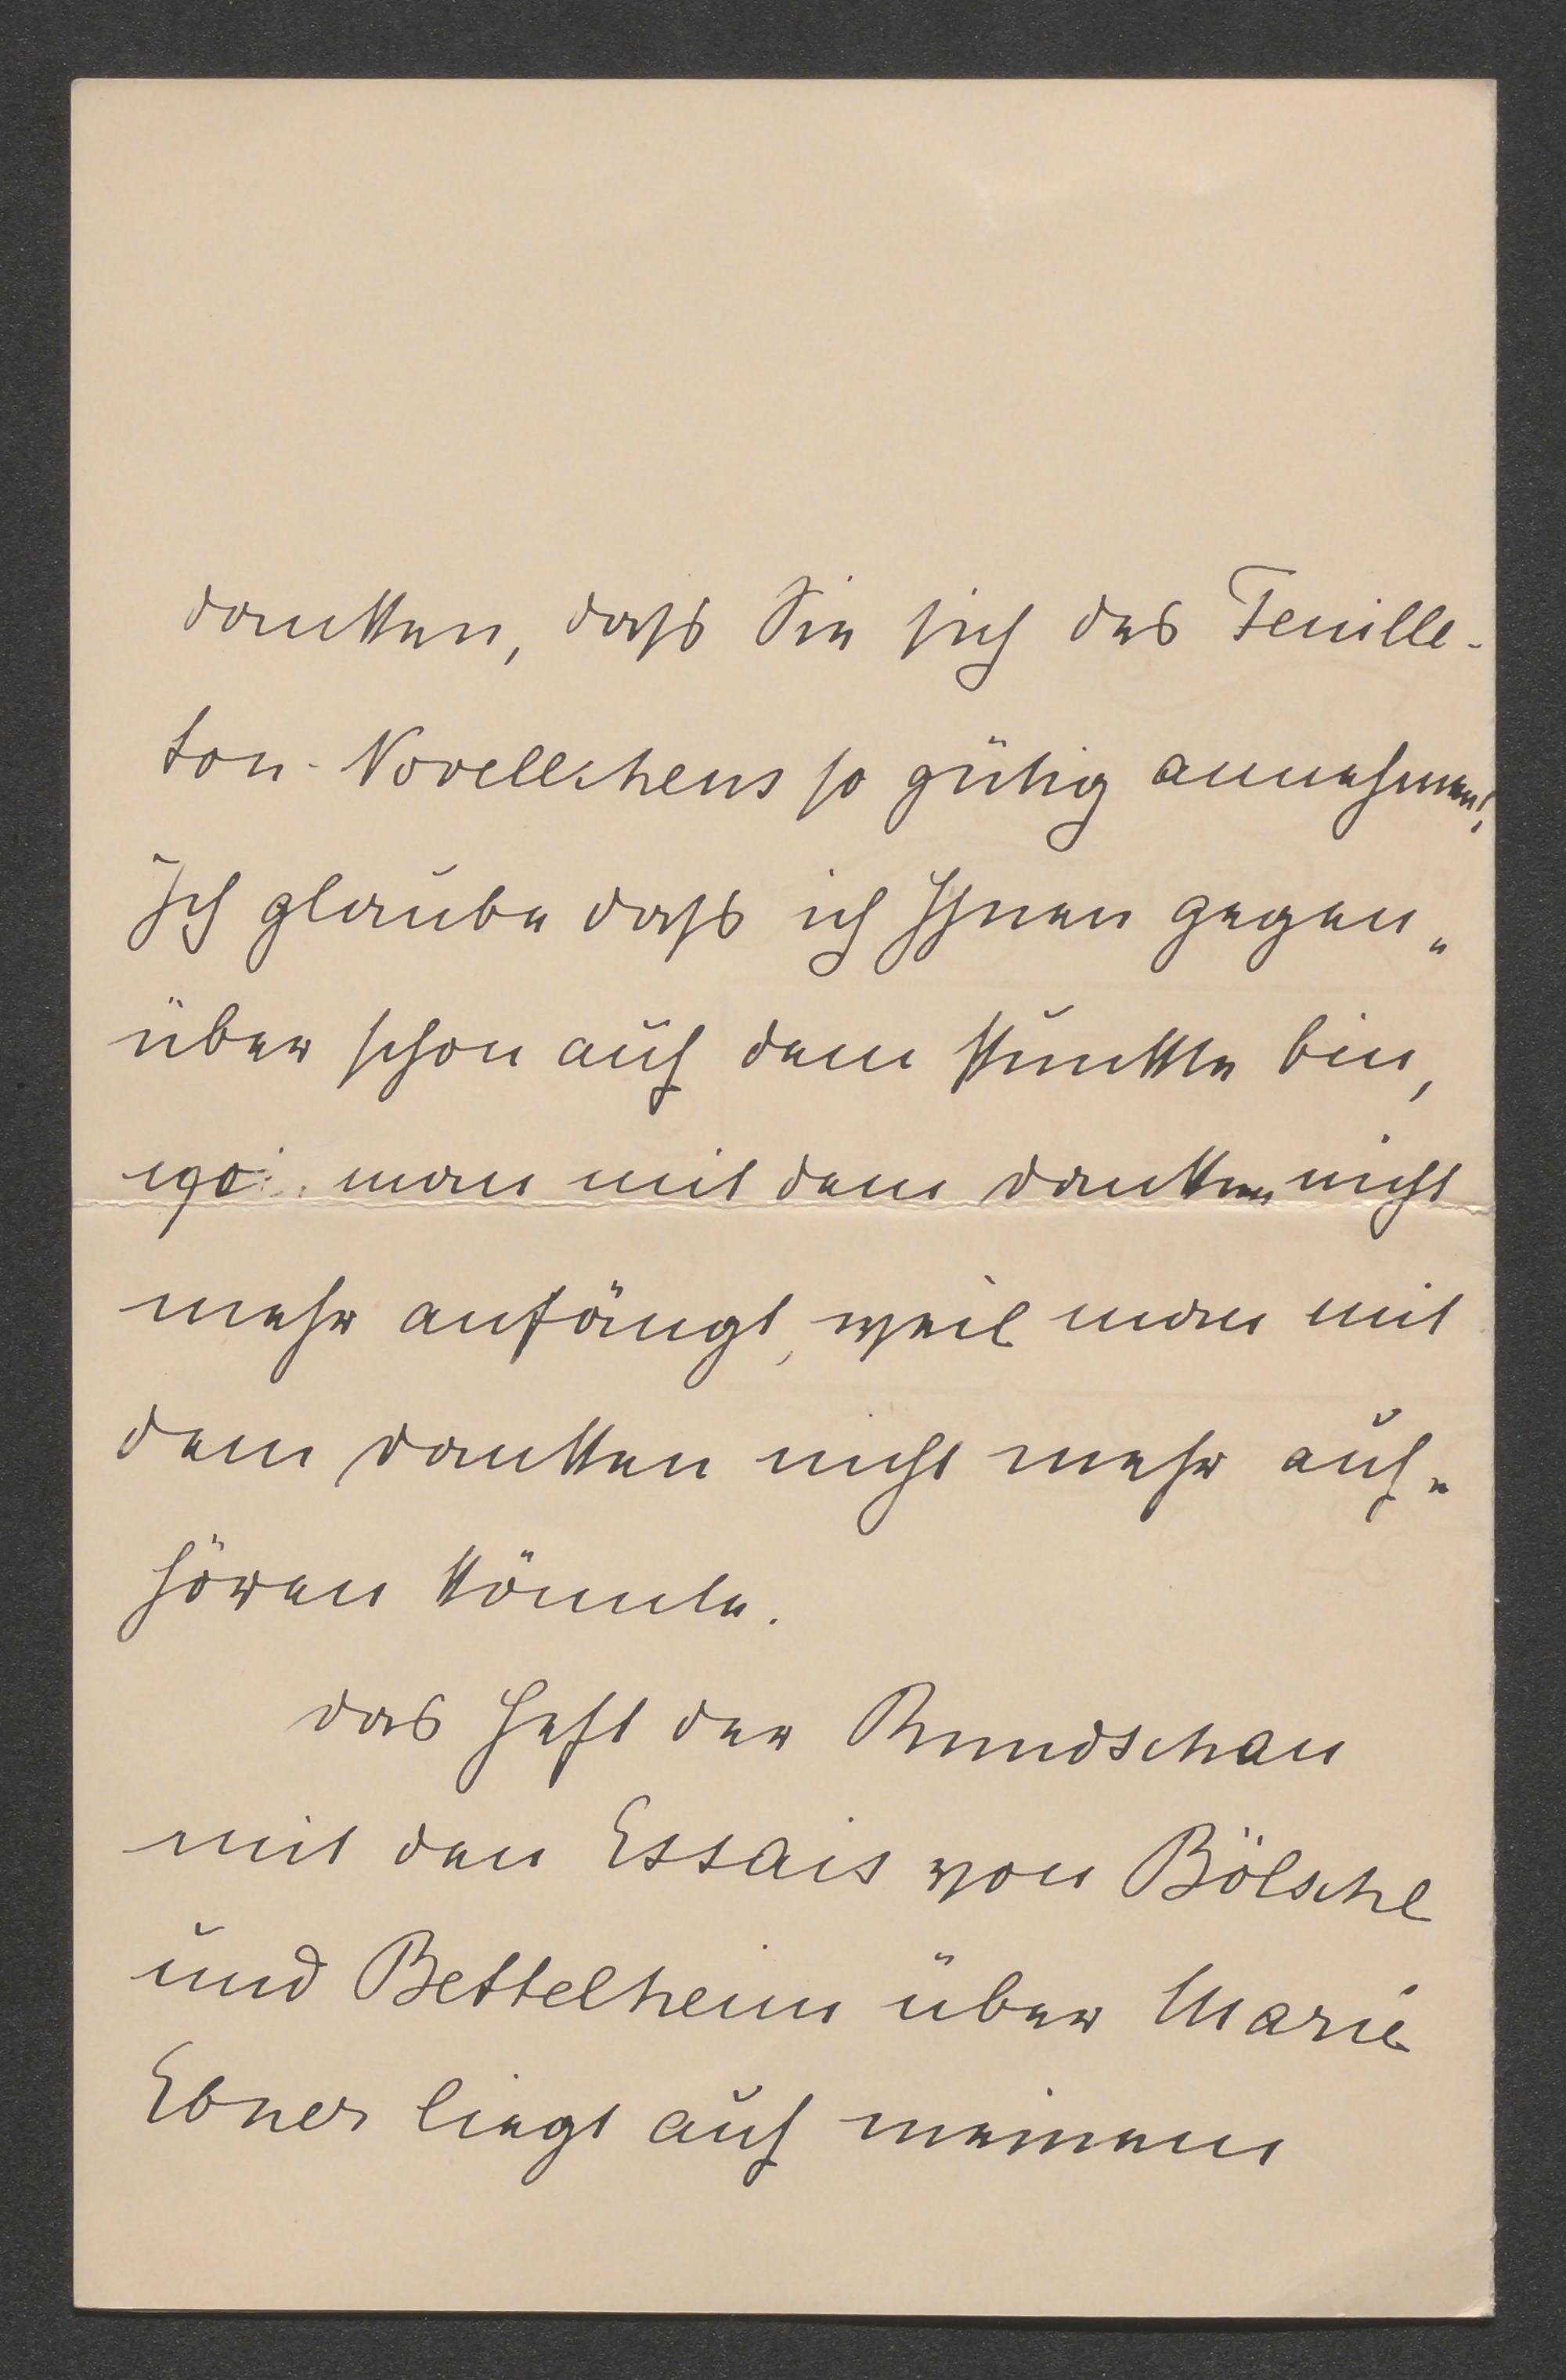 danken, daß Sie sich des Feuille-
ton-Novellchens so gütig annehmen!
Ich glaube daß ich Ihnen gegen-
über schon auf dem Punkte bin,
wo man mit dem danken nicht
mehr anfängt, weil man mit
dem danken nicht mehr auf-
hören könnte.
Das Heft der Rundschau
mit den Essais von Bölsche
und Bettelheim über Marie
Ebner liegt auf meinem